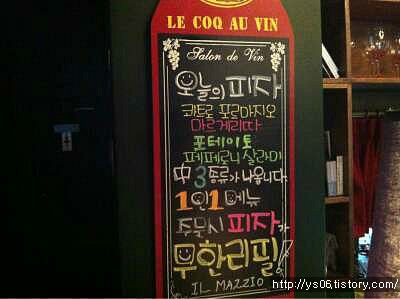 LE COQ AU VIN
Salon de Vin
오늘의 피자
콰트로 포르마지오
마르게리따
포테이토
페페로니 살라미
中 3종류가 나옵니다
1인1메뉴
주문시 피자가
무한리필
IL MAZZIO
http://ys06.tistory.com